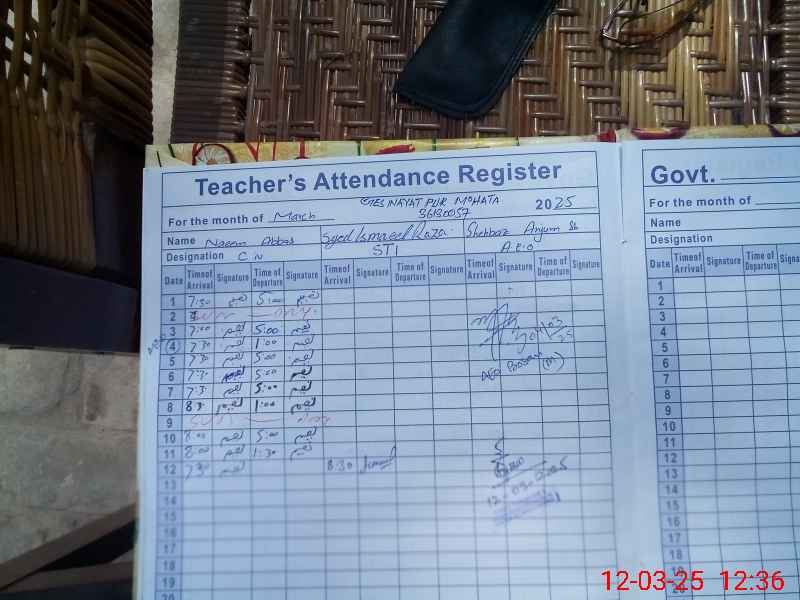 Teacher's Attendance Register
GES INAYAT PUR MOHATA
36130057
2025
For the month of March
Name Naeem Abbas Syed Ismaeel Raza Shahbaz Anjum Sb
Designation C.N STI A.E.O
Date Time of Arrival Signature Time of Departure Signature Time of Arrival Signature Time of Departure Signature Time of Arrival Signature Time of Departure Signature
1 7:30 نعیم 5:00 نعیم
2 Sun
3 7:00 نعیم 5:00 نعیم
4 7:30 نعیم 1:00 نعیم
5 7:30 نعیم 5:00 نعیم
6 7:30 نعیم 5:00 نعیم
7 7:30 نعیم 5:00 نعیم
8 8:30 نعیم 1:00 نعیم
9 Sun
10 8:00 نعیم 5:00 نعیم
11 8:00 نعیم 1:30 نعیم
12 7:30 نعیم 8:30
13
14
15
16
17
18
19
20
(M)
12-03-2025
Govt.
For the month of
Name
Designation
Date Time of Arrival Signature Time of Departure
1
2
3
4
5
6
7
8
9
10
11
12
13
14
15
16
17
18
19
20
12-03-25 12:36